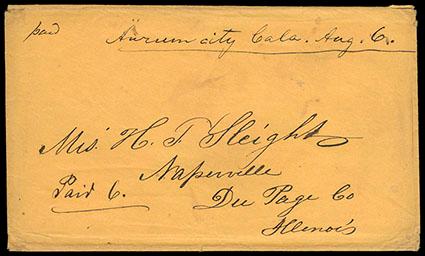 paid
Aurum city Cala. Aug. 6.
Mrs. H. T. Sleight
Naperville
Paid 6.
Du Page Co
Illenois